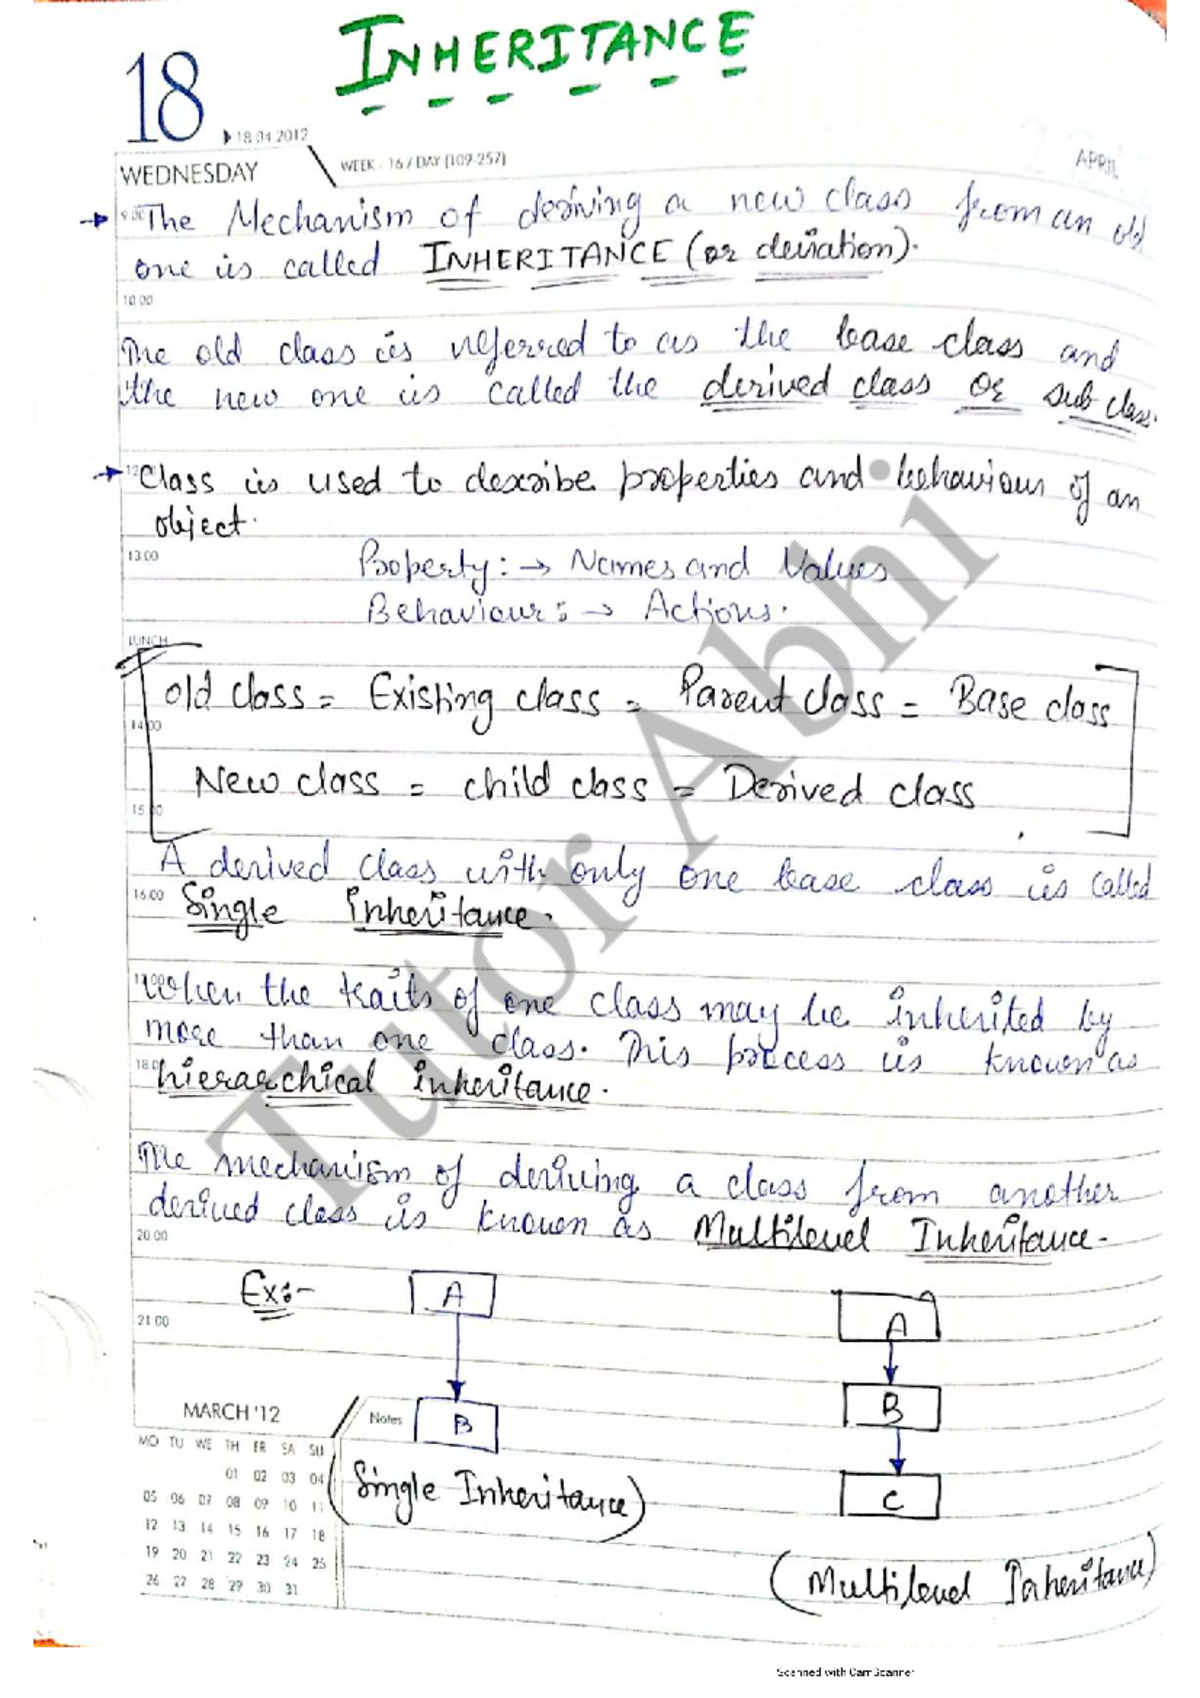 INHERITANCE
18
18.04.2012
WEDNESDAY
WEEK - 16 / DAY (109-257)
APRIL
9.00
The Mechanism of deriving a new class from an old
one is called INHERITANCE (or deviation).
10.00
The old class is referred to as the base class and
the new one is called the derived class or sub class.
Class is used to describe properties and behaviour of an
object.
13.00
Property: → Names and Values
Behaviour: → Actions.
LUNCH
old class = Existing class = Parent class = Base class
14.00
New class = child class = Derived class
15.00
A derived class with only one base class is called
16.00
Single Inheritance.
When the traits of one class may be inherited by
more than one class. This process is known as
hierarchical inheritance.
The mechanism of deriving a class from another
derived class is known as Multilevel Inheritance.
20.00
Ex:-
A
A
21.00
B
B
C
MARCH '12
Notes
MO TU WE TH FR SA SU
01 02 03 04
05 06 07 08 09 10 11
12 13 14 15 16 17 18
19 20 21 22 23 24 25
26 27 28 29 30 31
(Single Inheritance)
(Multilevel Inheritance)
Tutor Abhi
Scanned with CamScanner